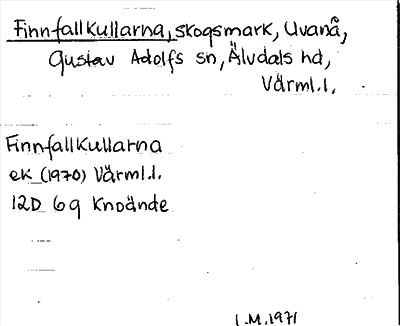 Finnfallkullarna, skogsmark, Uvanå,
Gustav Adolfs sn, Älvdals hd,
Värml. l.
Finnfallkullarna
ek (1970) Värml. l.
12D 6g Knoände
L.M. 1971